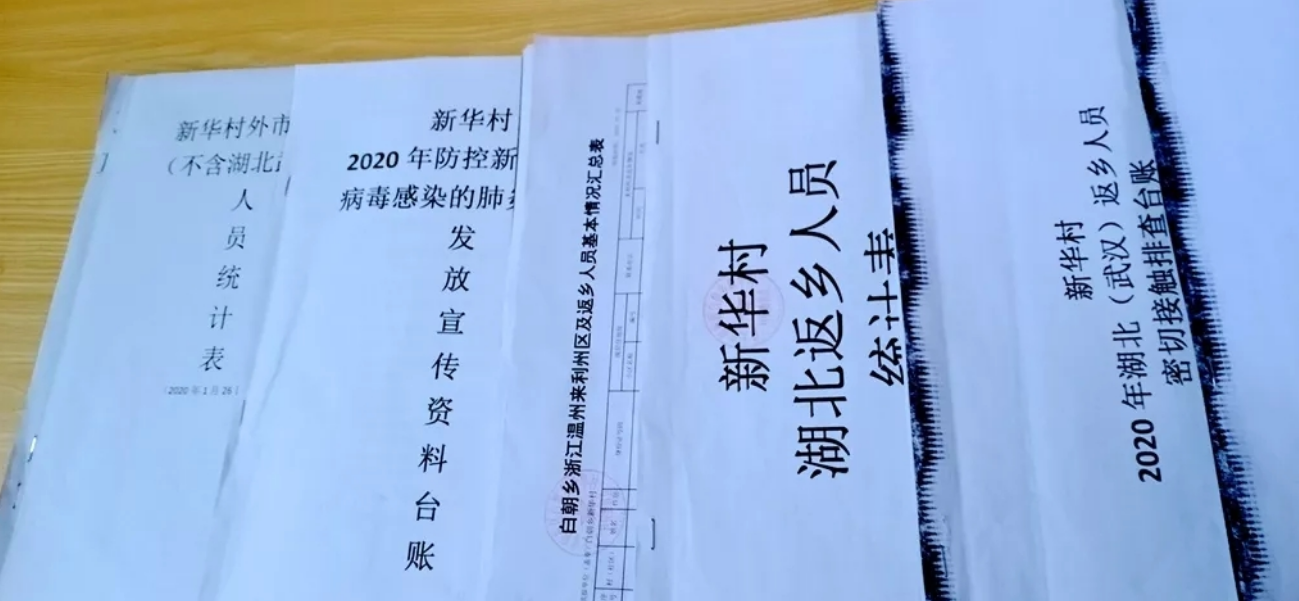 新华村外市
（不含湖北
人
员
统
计
表
（2020年1月26
新华村
2020 年防控新
病毒感染的肺
发
放
宣
传
资
料
台
账
白朝乡浙江温州来利州区及返乡人员基本情况汇总表
新华村
湖北返乡人员
统计表
新华村
2020 年湖北（武汉）返乡人员
密切接触排查台账